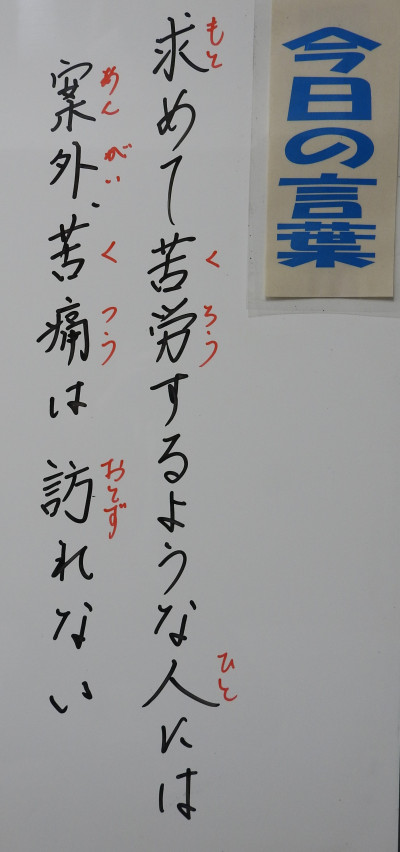 今日の言葉
求めて苦労するような人には
もと
くろう
ひと
案外、苦痛は 訪れない
あんがい
くつう
おとず